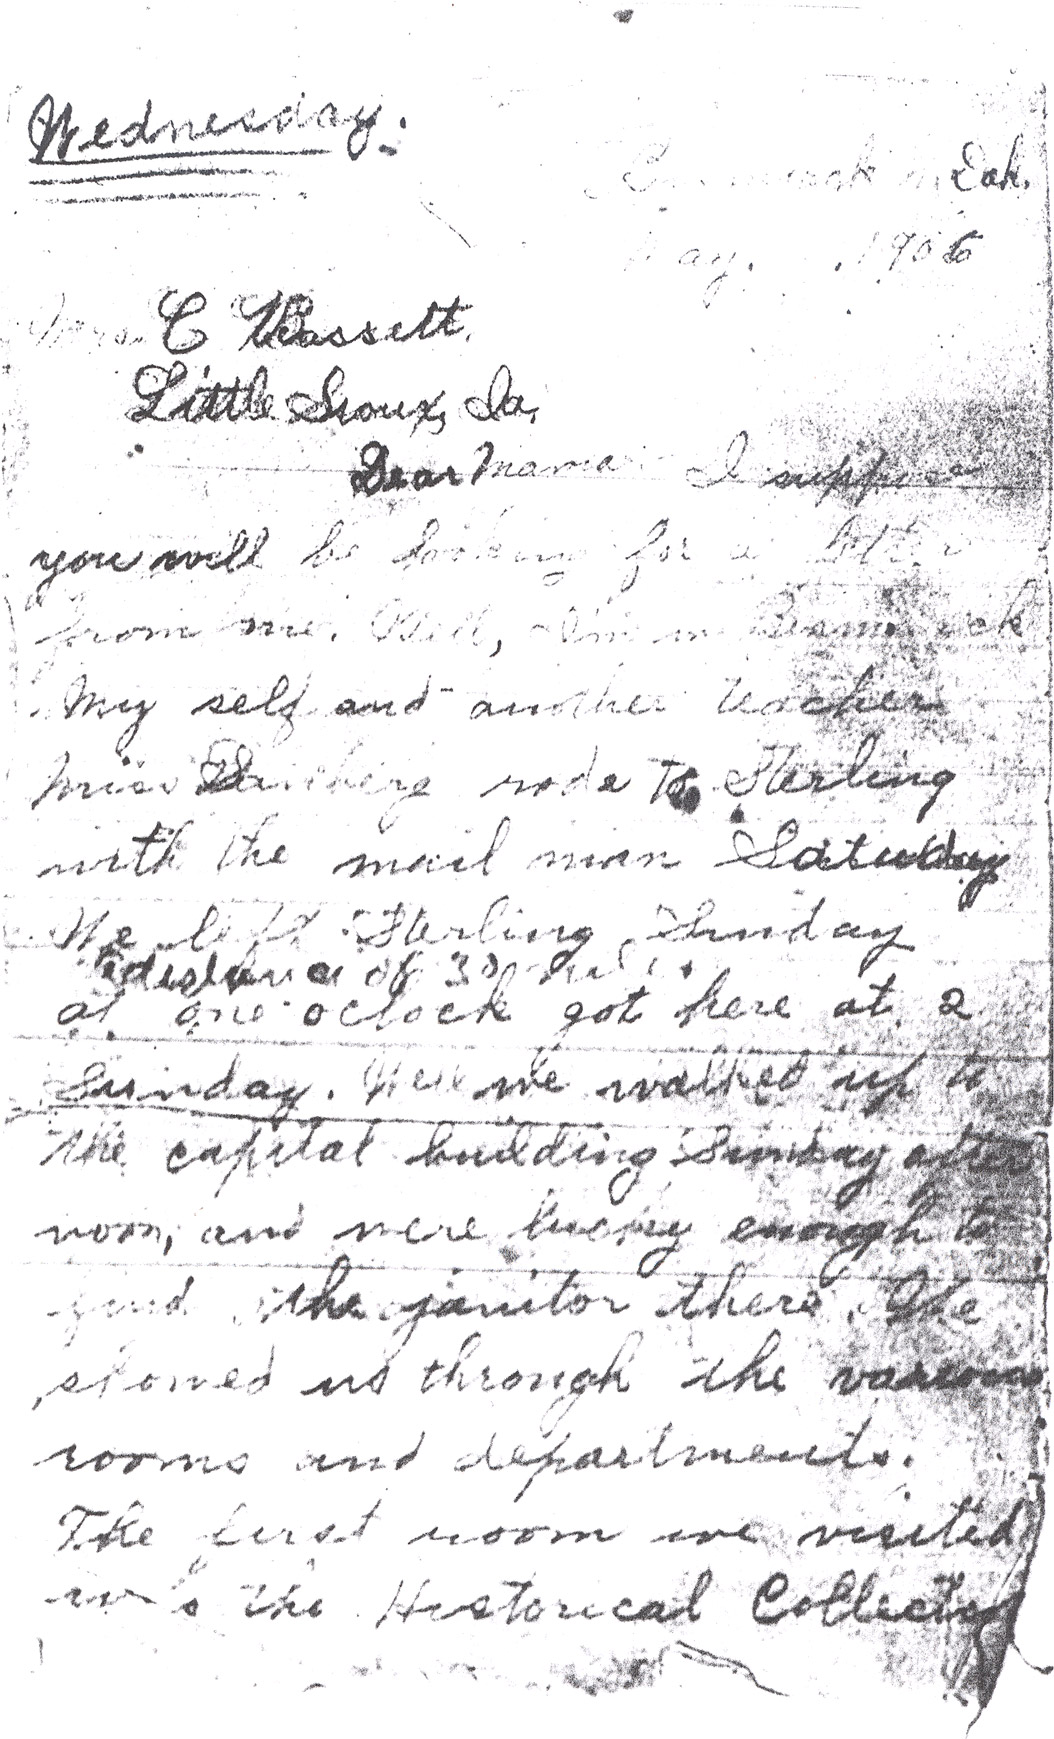 Wednesday.
Bismarck N Dak.
May. 1906
Mrs. C Bassett.
Little Sioux, Ia.
Dear Mama I suppose
you will be looking for a letter
from me. Well, I'm in Bismarck
My self and another teacher
Miss rode to Sterling
with the mail man Saturday
We left Sterling Sunday
distance of 30 miles.
at one oclock got here at 2
Sunday. Well we walked up to
the capital building Sunday after
noon, and were lucky enough to
find the janitor there. He
showed us through the various
rooms and departments.
The first room we visited
was the Historical